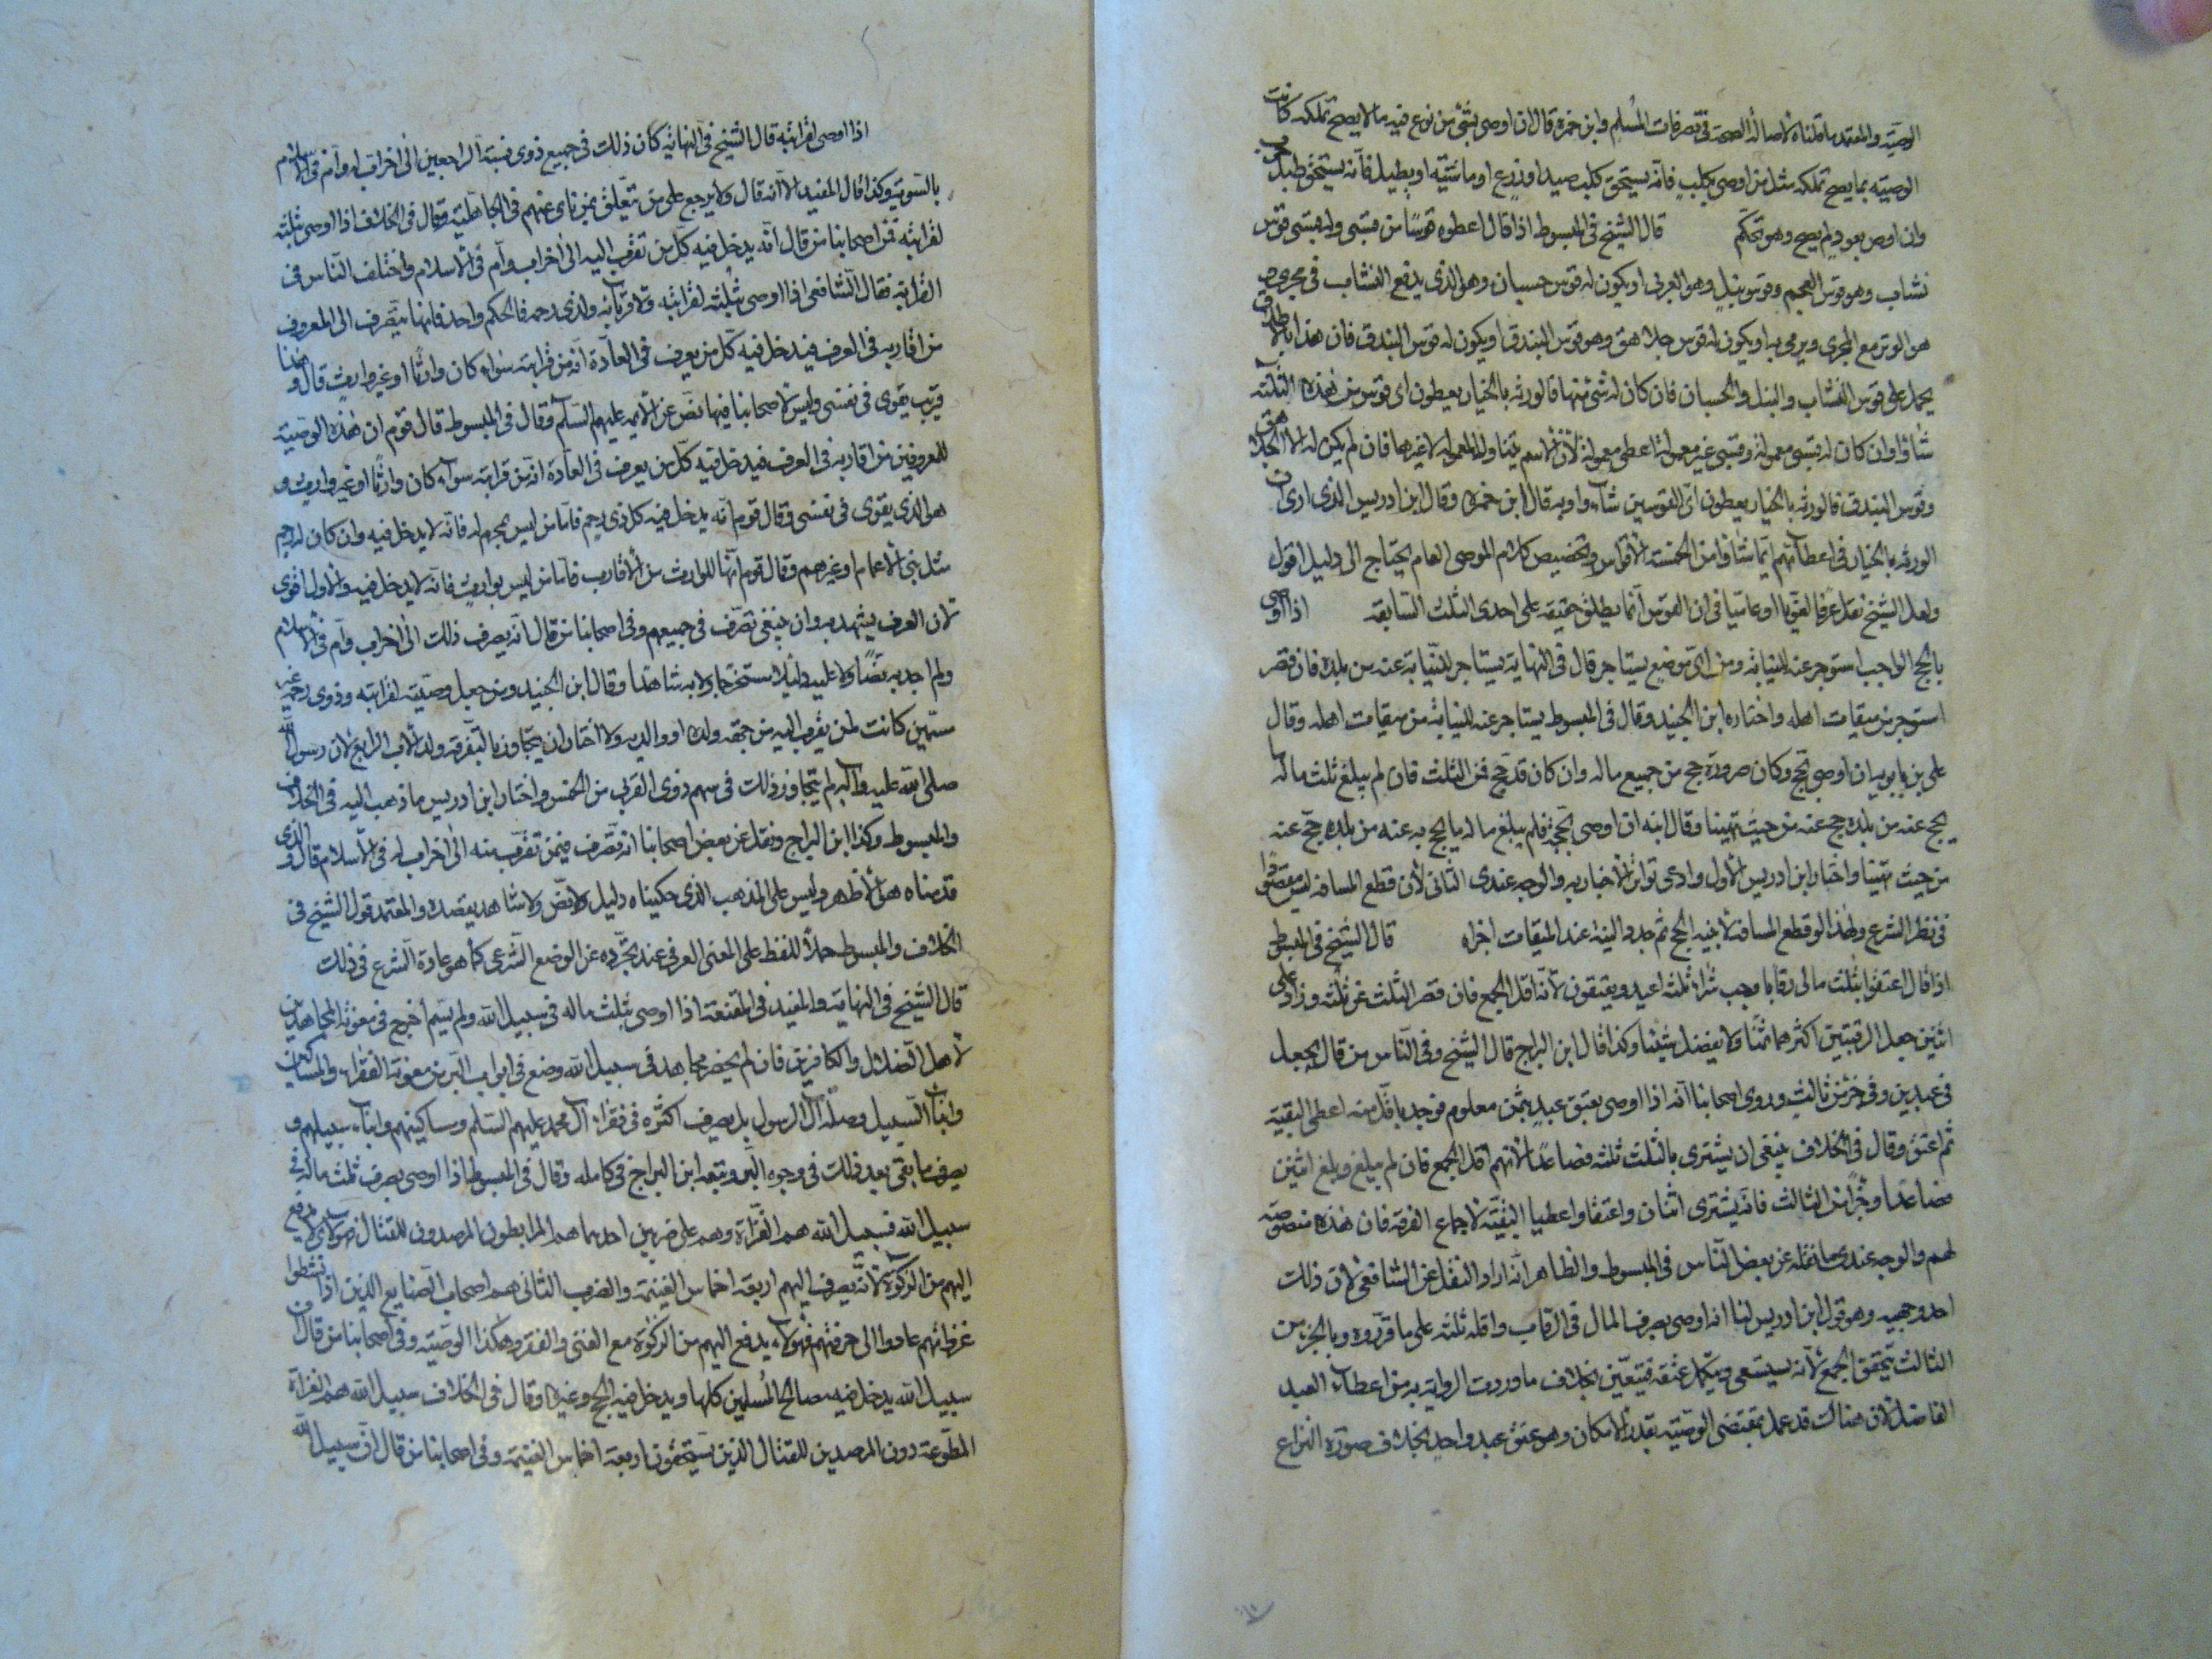 الوصية والمعتمد ما قلناه لاصالة الصحة في تصرفات المسلم وابن حمزة قال ان اوصى بشئ من نوع فيه ما لا يصح تملكه كانت
الوصية بما يصح تملكه مثل من اوصى بكلب فانه يستحق كلب صيد او زرع او ماشية او بطبل فانه يستحق طبل حرب
وان اوصى بعود لم يصح وهو تحكم قال الشيخ في المبسوط اذا قال اعطوه قوسا من قسيي وله قسي قوس
نشاب وهو قوس العجم وقوس نبل وهو العربي او يكون له قوس حسبان وهو الذي يدفع النشاب في مجرى و
هو الوتر مع المجرى ويرمي به او يكون له قوس جلاهق وهو قوس البندق او يكون له قوس البندق فان هذا بالاطلاق
يحمل على قوس النشاب والنبل والحسبان فان كان له شئ منها فالورثة بالخيار يعطون اي قوس من هذه الثلثة
شاؤا وان كان له قسي معمولة وقسي غير معمولة اعطي معمولة لان الاسم يتناول المعمولة لا غيرها فان لم يكن له الا الجلاهق
وقوس البندق فالورثة بالخيار يعطون اي القوسين شاءوا وبه قال ابن حمزة وقال ابن ادريس الذي اراه ان
الورثة بالخيار في اعطائهم ايما شاؤا من الخمسة الاقواس وتخصيص كلام الموصي العام يحتاج الى دليل اقول
ولعل الشيخ نقل عرفا لغويا او عاميا في ان القوس انما يطلق حقيقة على احدى الثلث السابقة اذا اوصى
بالحج الواجب استوجر عنه للنيابة ومن اي موضع يستاجر قال في النهاية يستاجر للنيابة عنه من بلده فان قصر
استوجر من ميقات اهله واختاره ابن الجنيد وقال في المبسوط يستاجر عنه للنيابة من ميقات اهله وقال
علي بن بابويه ان اوصى بحج وكان صرورة حج من جميع ماله وان كان قد حج فمن الثلث فان لم يبلغ ثلث ماله ما
يحج عنه من بلده حج عنه من حيث تهيا وقال ابنه ان اوصى بحجة فلم يبلغ ماله ما يحج به عنه من بلده حج عنه
من حيث تهيا واختار ابن ادريس الاول وادعى تواتر الاخبار به والوجه عندي الثاني لان قطع المسافة ليس مقصودا
في نظر الشرع ولهذا لو قطع المسافة لا بنية الحج ثم جدد النية عند الميقات اجزاه قال الشيخ في المبسوط
اذا قال اعتقوا بثلث مالي رقابا وجب شراء ثلثة اعبد ويعتقون لانه اقل الجمع فان قصر الثلث عن ثلثة وزاد على
اثنين جعل الرقبتين اكثرهما ثمنا ولا يفضل شيئا وكذا قال ابن البراج قال الشيخ وفي الناس من قال يجعل
في عبدين وفي جزء من ثالث وروى اصحابنا انه اذا اوصى بعتق عبد بثمن معلوم فوجد باقل منه اعطي البقية
ثم اعتق وقال في الخلاف ينبغي ان يشترى بالثلث ثلثة فصاعدا لانهم اقل الجمع فان لم يبلغ وبلغ اثنين
فصاعدا وجزءا من الثالث فانه يشترى اثنان واعتقا واعطيا البقية لاجماع الفرقة فان هذه منصوصة
لهم والوجه عندي ما نقله عن بعض الناس في المبسوط والظاهر انه اراد النقل عن الشافعي لان ذلك
احد وجهيه وهو قول ابن ادريس لنا انه اوصى بصرف المال في الرقاب واقله ثلثة على ما قرروه وبالجزء من
الثالث يتحقق الجمع لانه يستسعى ويتكمل عتقه فيتعين بخلاف ما وردت الرواية به من اعطاء العبد
الفاضل لان هناك قد عمل بمقتضى الوصية بقدر الامكان وهو عتق عبد واحد بخلاف صورة النزاع
اذا اوصى لقرابته قال الشيخ في النهاية كان ذلك في جميع ذوي نسبه الراجعين الى اخر اب له وام في الاسلام
بالسوية وكذا قال المفيد الا انه قال ولا يرجع على من تعلق بمن ناى عنهم في الجاهلية وقال في الخلاف اذا اوصى بثلثه
لقرابته فمن اصحابنا من قال انه يدخل فيه كل من تقرب اليه الى اخر اب وام في الاسلام واختلف الناس في
القرابة فقال الشافعي اذا اوصى بثلثه لقرابته ولاقربائه ولذي رحمه فالحكم واحد فانها تنصرف الى المعروف
من اقاربه في العرف فيدخل فيه كل من يعرف في العادة انه من قرابته سواء كان وارثا او غير وارث قال وهذا
قريب يقوى في نفسي وليس لاصحابنا فيها نص عن الائمة عليهم السلم وقال في المبسوط قال قوم ان هذه الوصية
للمعروفين من اقاربه في العرف فيدخل فيه كل من يعرف في العادة انه من قرابته سواء كان وارثا او غير وارث و
هو الذي يقوى في نفسي وقال قوم انه يدخل فيه كل ذي رحم فاما من ليس بمحرم له فانه لا يدخل فيه وان كان له رحم
مثل بني الاعمام وغيرهم وقال قوم انها للوارث من الاقارب فاما من ليس بوارث فانه لا يدخل فيه والاول اقوى
لان العرف يشهد به وان ينبغي تصرف في جميعهم وفي اصحابنا من قال انه يصرف ذلك الى اخر اب وام في الاسلام
ولم اجد به نصا ولا عليه دليلا مستخرجا ولا به شاهدا وقال ابن الجنيد ومن جعل وصيته لقرابته وذوي رحمه غير
مسمين كانت لمن يقرب اليه من جهة ولده او والديه ولا اختار ان يتجاوز بالتفرقة ولد الاب الرابع لان رسول الله
صلى الله عليه واله لم يتجاوز ذلك في سهم ذوي القربى من الخمس واختار ابن ادريس ما ذهب اليه في الخلاف
والمبسوط وكذا ابن البراج ونقل عن بعض اصحابنا انه تصرف فيمن تقرب منه الى اخر اب له في الاسلام قال والذي
قدمناه هو الاظهر وليس على المذهب الذي حكيناه دليل ولا نص ولا شاهد يعضده والمعتمد قول الشيخ في
الخلاف والمبسوط حملا للفظ على المعنى العرفي عند تجرده عن الوضع الشرعي كما هو عادة الشرع في ذلك
قال الشيخ في النهاية والمفيد في المقنعة اذا اوصى بثلث ماله في سبيل الله ولم يسم اخرج في معونة المجاهدين
لاهل الضلال والكافرين فان لم يحضر مجاهد في سبيل الله وضع في ابواب البر من معونة الفقراء والمساكين
وابناء السبيل وصلة ال الرسول بل يصرف اكثره في فقراء ال محمد عليهم السلم ومساكينهم وابناء سبيلهم و
يصرف ما بقي بعد ذلك في وجوه البر وتبعه ابن البراج في كامله وقال في المبسوط اذا اوصى بصرف ثلث ماله في
سبيل الله فسبيل الله هم الغزاة وهم على ضربين احدهما هم المرابطون المرصدون للقتال فهؤلاء لا يدفع
اليهم من الزكوة لانه يصرف اليهم اربعة اخماس الغنيمة والضرب الثاني هم اصحاب الصنايع الذين اذا نشطوا
غزوا ثم عادوا الى حرفتهم فهؤلاء يدفع اليهم من الزكوة مع الغنى والفقر وهكذا الوصية وفي اصحابنا من قال ان
سبيل الله يدخل فيه مصالح المسلمين كلها ويدخل فيه الحج وغيره وقال في الخلاف سبيل الله هم الغزاة
المطوعة دون المرصدين للقتال الذين يستحقون اربعة اخماس الغنيمة وفي اصحابنا من قال ان سبيل الله